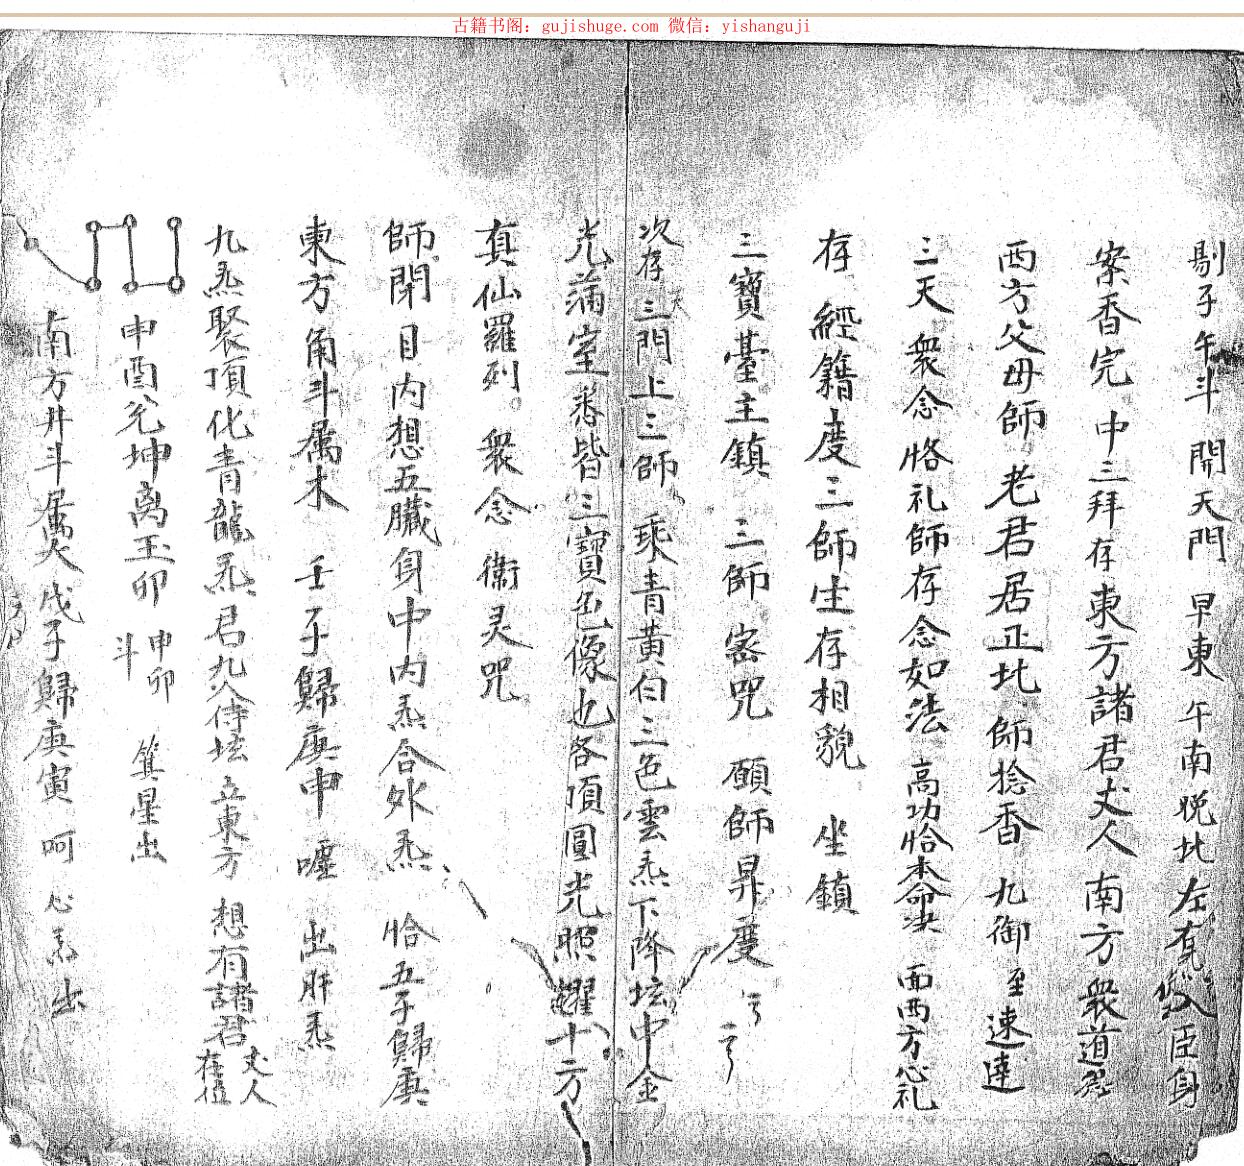 古籍书阁：gujishuge.com 微信：yishanguji
剔子午斗 開天門 早東午南晚北左右 入臣身
案香完 中三拜存東方諸君丈人 南方衆道
西方父母師 老君居正北 師捻香 九御至速達
三天 衆念恪礼師存念如法 高功恰本命决 面西方心礼
存 經籍度三師坐存相貌 坐鎮
三寶臺主鎮 三師密咒 願師昇度
次存三天門上三師 乘青黃白三色雲炁下降坛中金
光蒲室悉皆三寶色像也各項圓光照耀十方
真仙羅列 衆念 衛灵咒
師閉目内想五臟身中内炁合外炁 恰五子歸庚
東方角斗属木 壬子歸庚申 嘘 出肝炁
九炁聚頂化青龍炁君九人侍坛立東方 想有諸君丈人存位
申酉兊坤离玉卯 申卯斗 箕星出
南方井斗属火 戊子歸庚寅 呵 心炁出